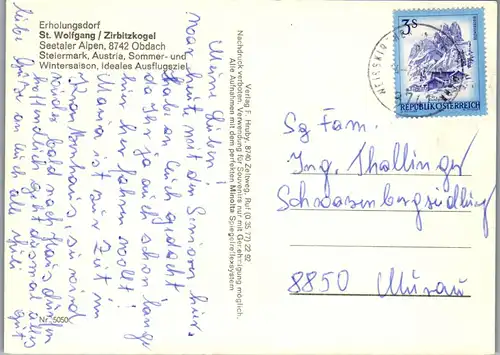 Erholungsdorf
St. Wolfgang / Zirbitzkogel
Seetaler Alpen, 8742 Obdach
Steiermark, Austria, Sommer- und
Wintersaison, Ideales Ausflugsziel
Meine Lieben!
War heute mit den Senioren hier,
habe an Euch gedacht
da Ihr ja auch schon lange
hier her fahren wollt!
Mama ist zur Zeit im
Krankenhaus, sie wird
wieder bald nach Haus dürfen
hoffendlich geht diesmal alles
gut
liebe Grüße an Euch alle
Nr. 5050
Verlag F. Hruby, 8740 Zeltweg, Ruf (0 35 77) 22 92
Nachdruck verboten. Verwendung für Souvenirs nur mit Genehmigung möglich.
Alle Aufnahmen mit dem perfekten Minolta Spiegelreflexsystem
3S
REPUBLIK ÖSTERREICH
Sg Fam.
Ing. Thallinger
Schwarzenbergsiedlung
8850 Murau